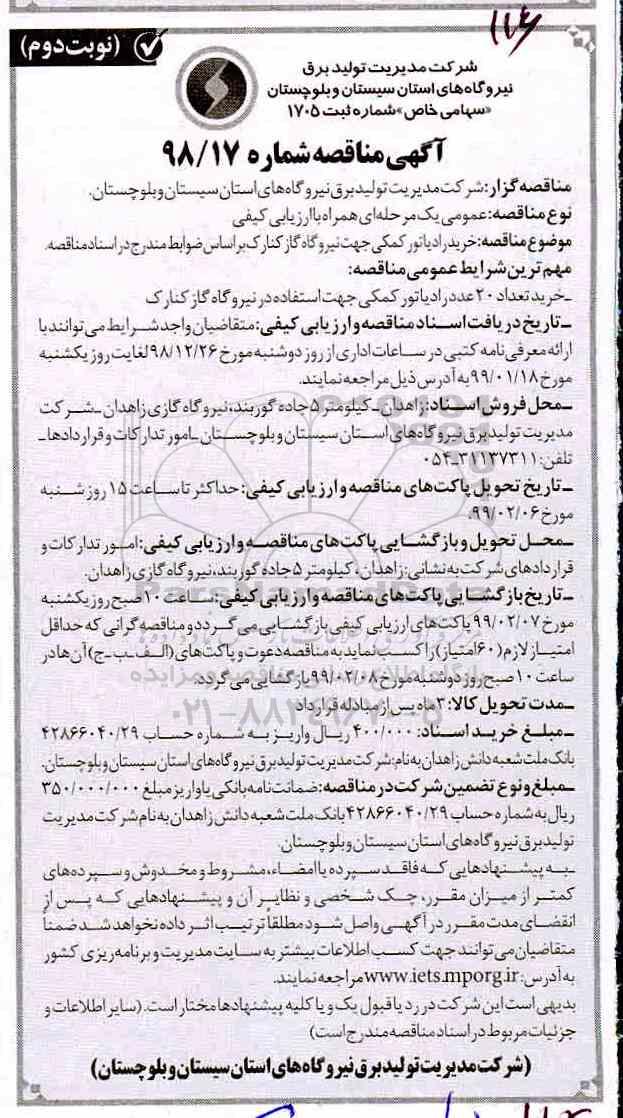 ۱۱۶
(نوبت دوم)
شرکت مدیریت تولید برق
نیروگاه‌های استان سیستان و بلوچستان
«سهامی خاص» شماره ثبت ۱۷۰۵
آگهی مناقصه شماره ۹۸/۱۷
مناقصه گزار: شرکت مدیریت تولید برق نیروگاه‌های استان سیستان و بلوچستان.
نوع مناقصه: عمومی یک مرحله‌ای همراه با ارزیابی کیفی
موضوع مناقصه: خرید رادیاتور کمکی جهت نیروگاه گاز کنارک بر اساس ضوابط مندرج در اسناد مناقصه.
مهم ترین شرایط عمومی مناقصه:
ـ خرید تعداد ۲۰ عدد رادیاتور کمکی جهت استفاده در نیروگاه گاز کنارک
ـ تاریخ دریافت اسناد مناقصه و ارزیابی کیفی: متقاضیان واجد شرایط می‌توانند با
ارائه معرفی نامه کتبی در ساعات اداری از روز دوشنبه مورخ ۹۸/۱۲/۲۶ لغایت روز یکشنبه
مورخ ۹۹/۰۱/۱۸ به آدرس ذیل مراجعه نمایند.
ـ محل فروش اسناد: زاهدان ـ کیلومتر ۵ جاده گوربند، نیروگاه گازی زاهدان ـ شرکت
مدیریت تولید برق نیروگاه‌های استان سیستان و بلوچستان ـ امور تدارکات و قراردادها ـ
تلفن: ۳۱۱۳۷۳۱۱ـ۰۵۴
ـ تاریخ تحویل پاکت‌های مناقصه و ارزیابی کیفی: حداکثر تا ساعت ۱۵ روز شنبه
مورخ ۹۹/۰۲/۰۶.
ـ محل تحویل و بازگشایی پاکت‌های مناقصه و ارزیابی کیفی: امور تدارکات و
قراردادهای شرکت به نشانی: زاهدان، کیلومتر ۵ جاده گوربند، نیروگاه گازی زاهدان.
ـ تاریخ بازگشایی پاکت‌های مناقصه و ارزیابی کیفی: ساعت ۱۰ صبح روز یکشنبه
مورخ ۹۹/۰۲/۰۷ پاکت‌های ارزیابی کیفی بازگشایی می‌گردد و مناقصه گرانی که حداقل
امتیاز لازم (۶۰ امتیاز) را کسب نماید به مناقصه دعوت و پاکت‌های (الف ـ ب ـ ج) آن‌ها در
ساعت ۱۰ صبح روز دوشنبه مورخ ۹۹/۰۲/۰۸ بازگشایی می‌گردد.
ـ مدت تحویل کالا: ۳ ماه پس از مبادله قرارداد
۰۲۱-۸۸۳۴۹۶۷۰-۵
ـ مبلغ خرید اسناد: ۴۰۰/۰۰۰ ریال واریز به شماره حساب ۴۲۸۶۶۰۴۰/۲۹
بانک ملت شعبه دانش زاهدان به نام: شرکت مدیریت تولید برق نیروگاه‌های استان سیستان و بلوچستان.
ـ مبلغ و نوع تضمین شرکت در مناقصه: ضمانت نامه بانکی یا واریز مبلغ ۳۵۰/۰۰۰/۰۰۰
ریال به شماره حساب ۴۲۸۶۶۰۴۰/۲۹ بانک ملت شعبه دانش زاهدان به نام شرکت مدیریت
تولید برق نیروگاه‌های استان سیستان و بلوچستان.
ـ به پیشنهادهایی که فاقد سپرده یا امضاء، مشروط و مخدوش و سپرده‌های
کمتر از میزان مقرر، چک شخصی و نظایر آن و پیشنهادهایی که پس از
انقضای مدت مقرر در آگهی واصل شود مطلقاً ترتیب اثر داده نخواهد شد ضمناً
متقاضیان می‌توانند جهت کسب اطلاعات بیشتر به سایت مدیریت و برنامه‌ریزی کشور
به آدرس: www.iets.mporg.ir مراجعه نمایند.
بدیهی است این شرکت در رد یا قبول یک و یا کلیه پیشنهادها مختار است. (سایر اطلاعات و
جزئیات مربوط در اسناد مناقصه مندرج است)
(شرکت مدیریت تولید برق نیروگاه‌های استان سیستان و بلوچستان)